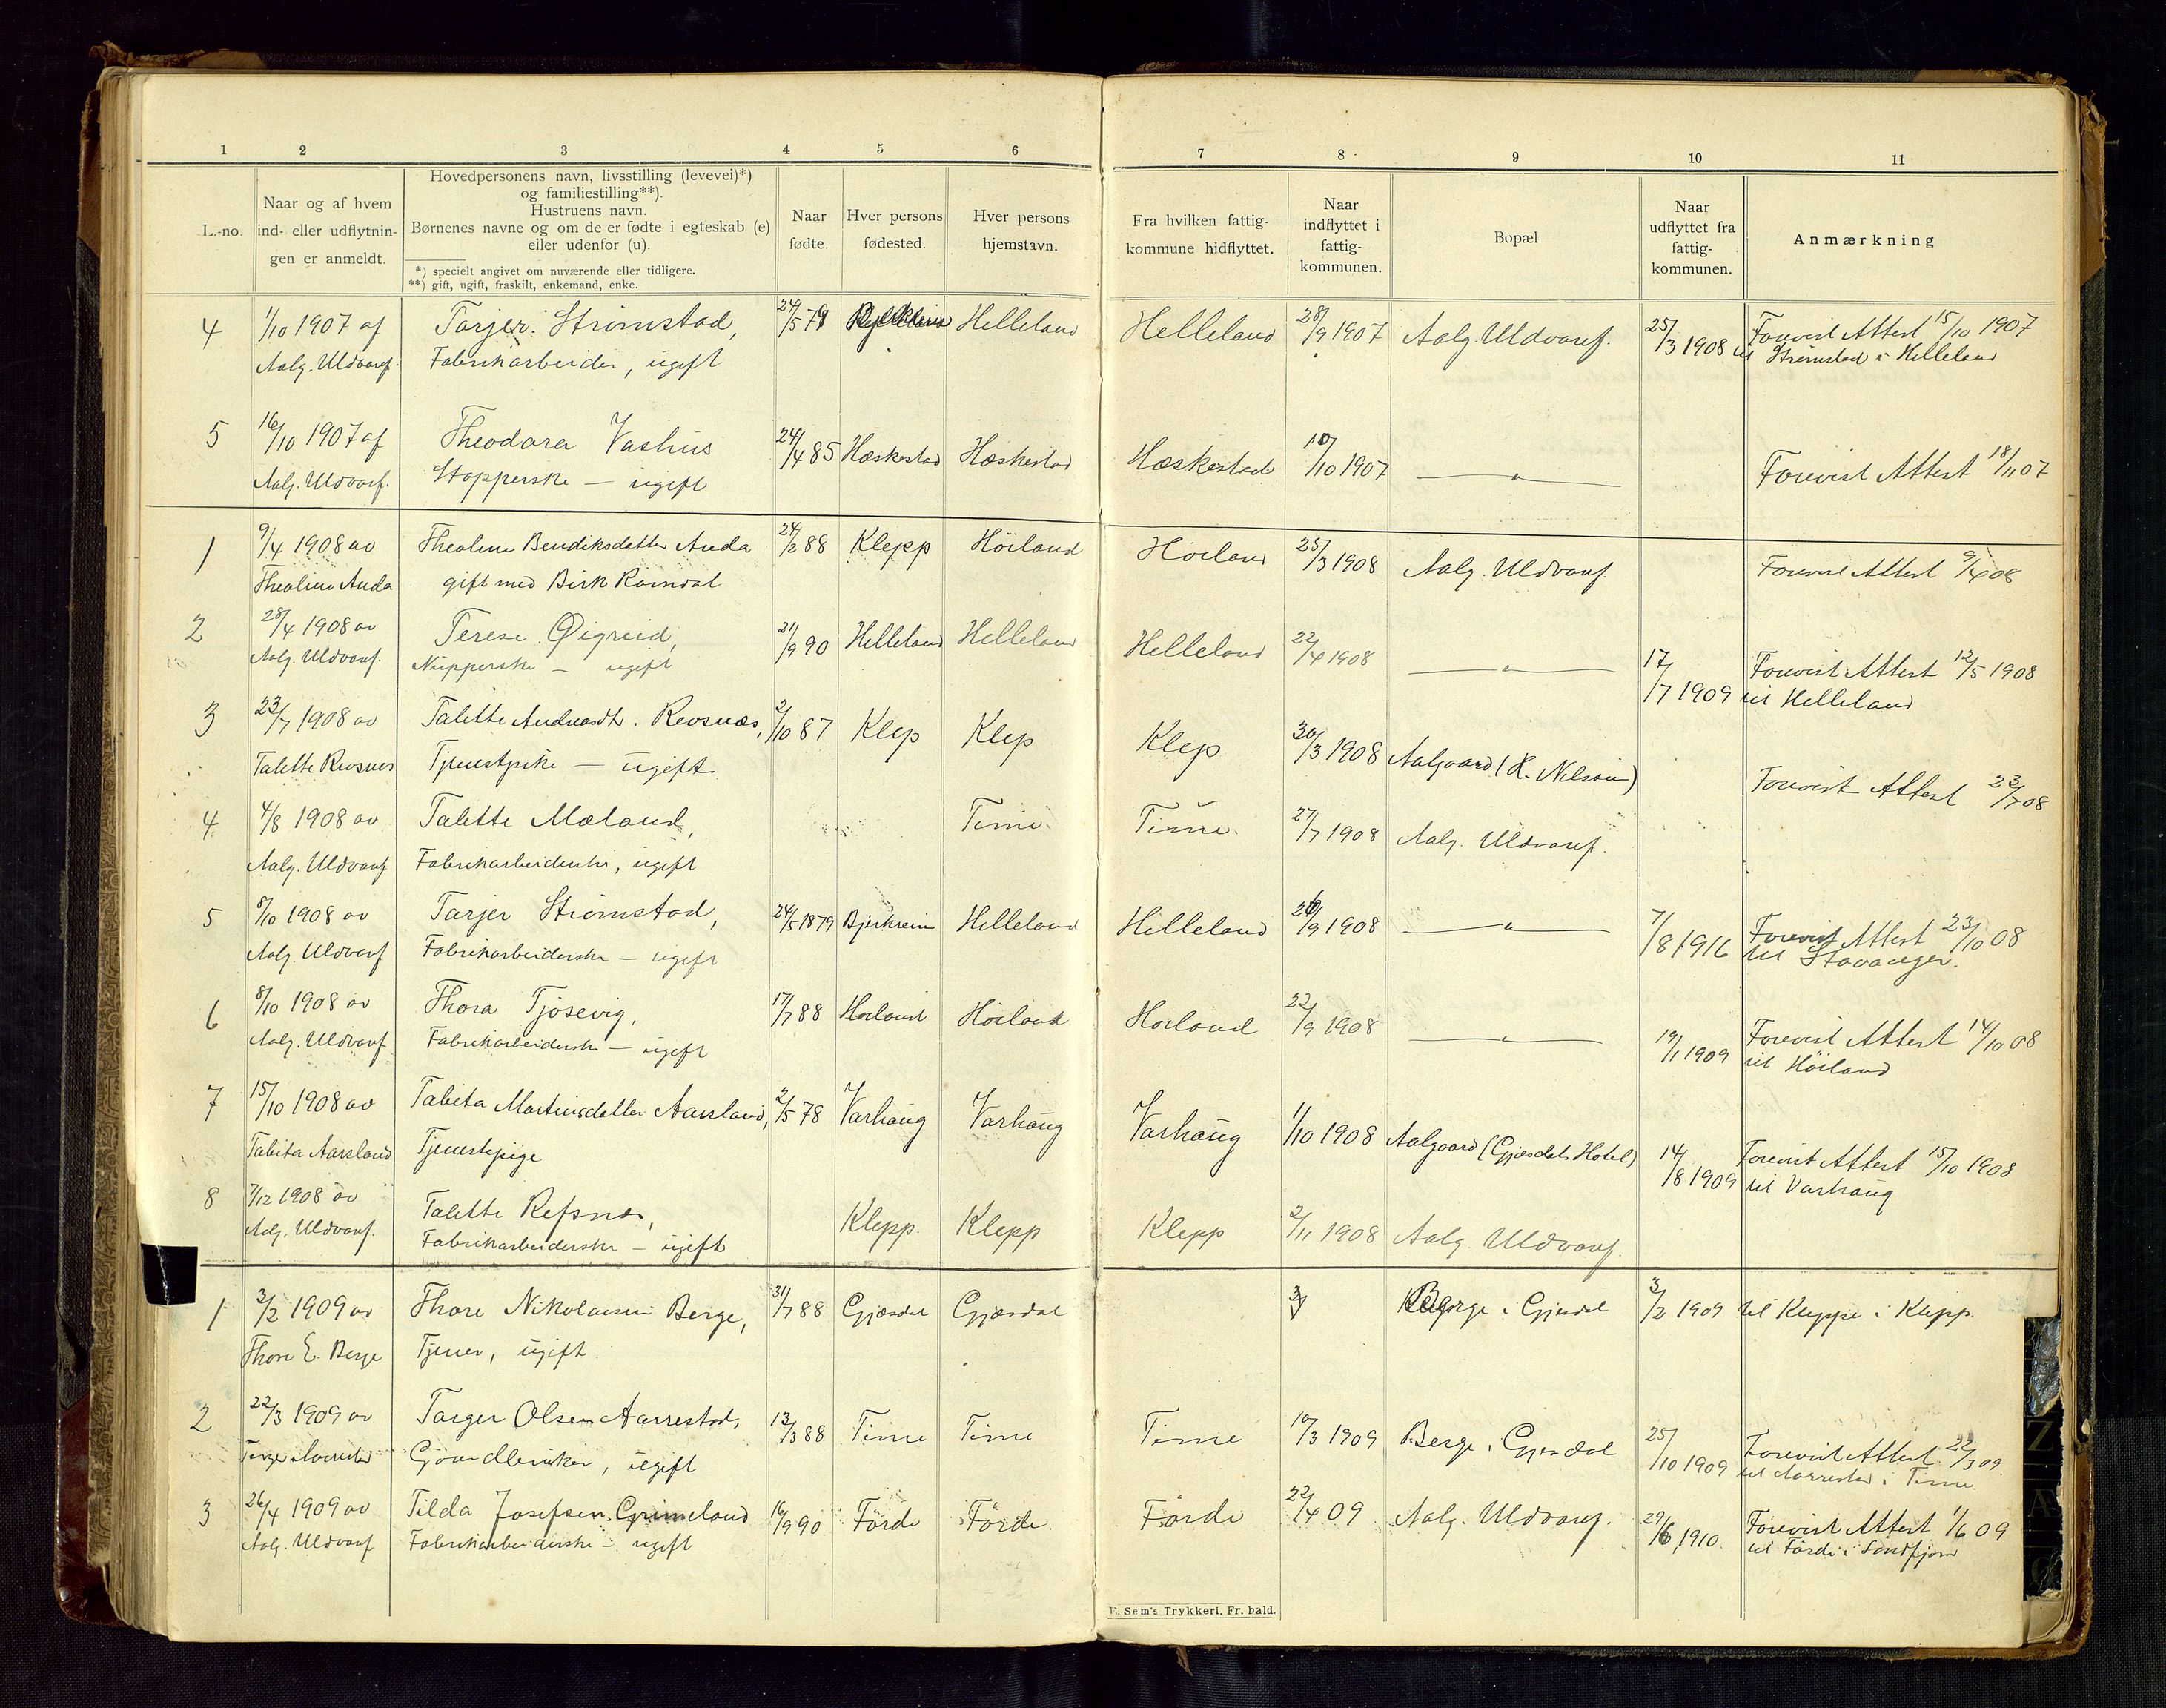 1 2 3 4 5 6 7 8 9 10 11
L.-no.
Naar og af hvem
ind- eller udflytnin-
gen er anmeldt.
Hovedpersonens navn, livsstilling (levevei)*)
og familiestilling**).
Hustruens navn.
Børnenes navne og om de er fødte i egteskab (e)
eller udenfor (u).
*) specielt angivet om nuværende eller tidligere.
**) gift, ugift, fraskilt, enkemand, enke.
Naar
fødte.
Hver persons
fødested.
Hver persons
hjemstavn.
Fra hvilken fattig-
kommune hidflyttet.
Naar
indflyttet i
fattig-
kommunen.
Bopæl
Naar
udflyttet fra
fattig-
kommunen.
Anmærkning
4 1/10 1907 af Tarjer Strømstad, 24/5 79 Helleland Helleland 28/9 1907 Aalg Uldvaref. 25/3 1908 Forevist Attest 15/10 1907
Aalg. Uldvaref. Fabrikarbeider, ugift til Strømstad i Helleland
5 16/10 1907 af Theodora Vashus 24/4 85 Hæskestad Hæskestad Hæskestad 10/10 1907 — " — Forevist Attest 18/11 07
Aalg. Uldvaref. Stopperske — ugift
1 9/4 1908 av Thealine Bendiksdatter Anda 24/2 88 Klepp Höiland Höiland 25/3 1908 Aalg. Uldvaref. Forevist Attest 9/4 08
Thealine Anda gift med Birk Ramdal
2 28/4 1908 av Terese Øigreid, 21/9 90 Helleland Helleland Helleland 22/4 1908 — " — 17/7 1909 Forevist Attest 12/5 1908
Aalg. Uldvaref. Nupperske — ugift til Helleland
3 23/7 1908 av Talette Andreasdt. Revsnæs, 2/10 87 Klep Klep Klep 30/3 1908 Aalgaard (K. Nelson) Forevist Attest 23/7 08
Talette Revsnes Tjenestpike — ugift
4 4/8 1908 av Talette Mæland, Time Time 27/7 1908 Aalg. Uldvaref.
Aalg. Uldvaref Fabrikarbeiderske, ugift
5 8/10 1908 av Tarjer Strømstad, 24/5 1879 Bjerkreim Helleland Helleland 26/9 1908 — " — 7/8 1916 Forevist Attest 23/10 08
Aalg. Uldvaref Fabrikarbeiderske — ugift til Stavanger.
6 8/10 1908 av Thora Tjösevig, 17/7 88 Höiland Höiland Höiland 22/9 1908 — " — 19/1 1909 Forevist Attest 14/10 08
Aalg. Uldvaref Fabrikarbeiderske — ugift til Höiland
7 15/10 1908 av Tabita Martinsdatter Aarsland, 2/5 78 Varhaug Varhaug Varhaug 1/10 1908 Aalgaard (Gjesdals Hotel) 14/8 1909 Forevist Attest 15/10 1908
Tabita Aarsland Tjenestepige til Varhaug
8 7/12 1908 av Talette Refsnes, Klepp Klepp Klepp 2/11 1908 Aalg. Uldvaref.
Aalg. Uldvaref. Fabrikarbeiderske — ugift
1 3/2 1909 av Thore Nikolaisen Berge, 31/7 88 Gjæsdal Gjæsdal Berge i Gjesdal 3/2 1909 til Kleppe i Klepp.
Thore E. Berge Tjener, ugift
2 22/3 1909 av Targer Olsen Aarrestad, 13/3 88 Time Time Time 10/3 1909 Berge i Gjesdal 25/10 1909 Forevist Attest 22/3 09
Targer Aarrestad ugift til Aarrestad i Time
3 26/4 1909 av Tilda Josefsen Grimeland 16/9 90 Förde Förde Förde 22/4 09 Aalg. Uldvaref. 29/6 1910 Forevist Attest 1/6 09
Aalg. Uldvaref Fabrikarbeiderske — ugift til Förde i Söndfjord
E. Sem's Trykkeri, Fr. hald.